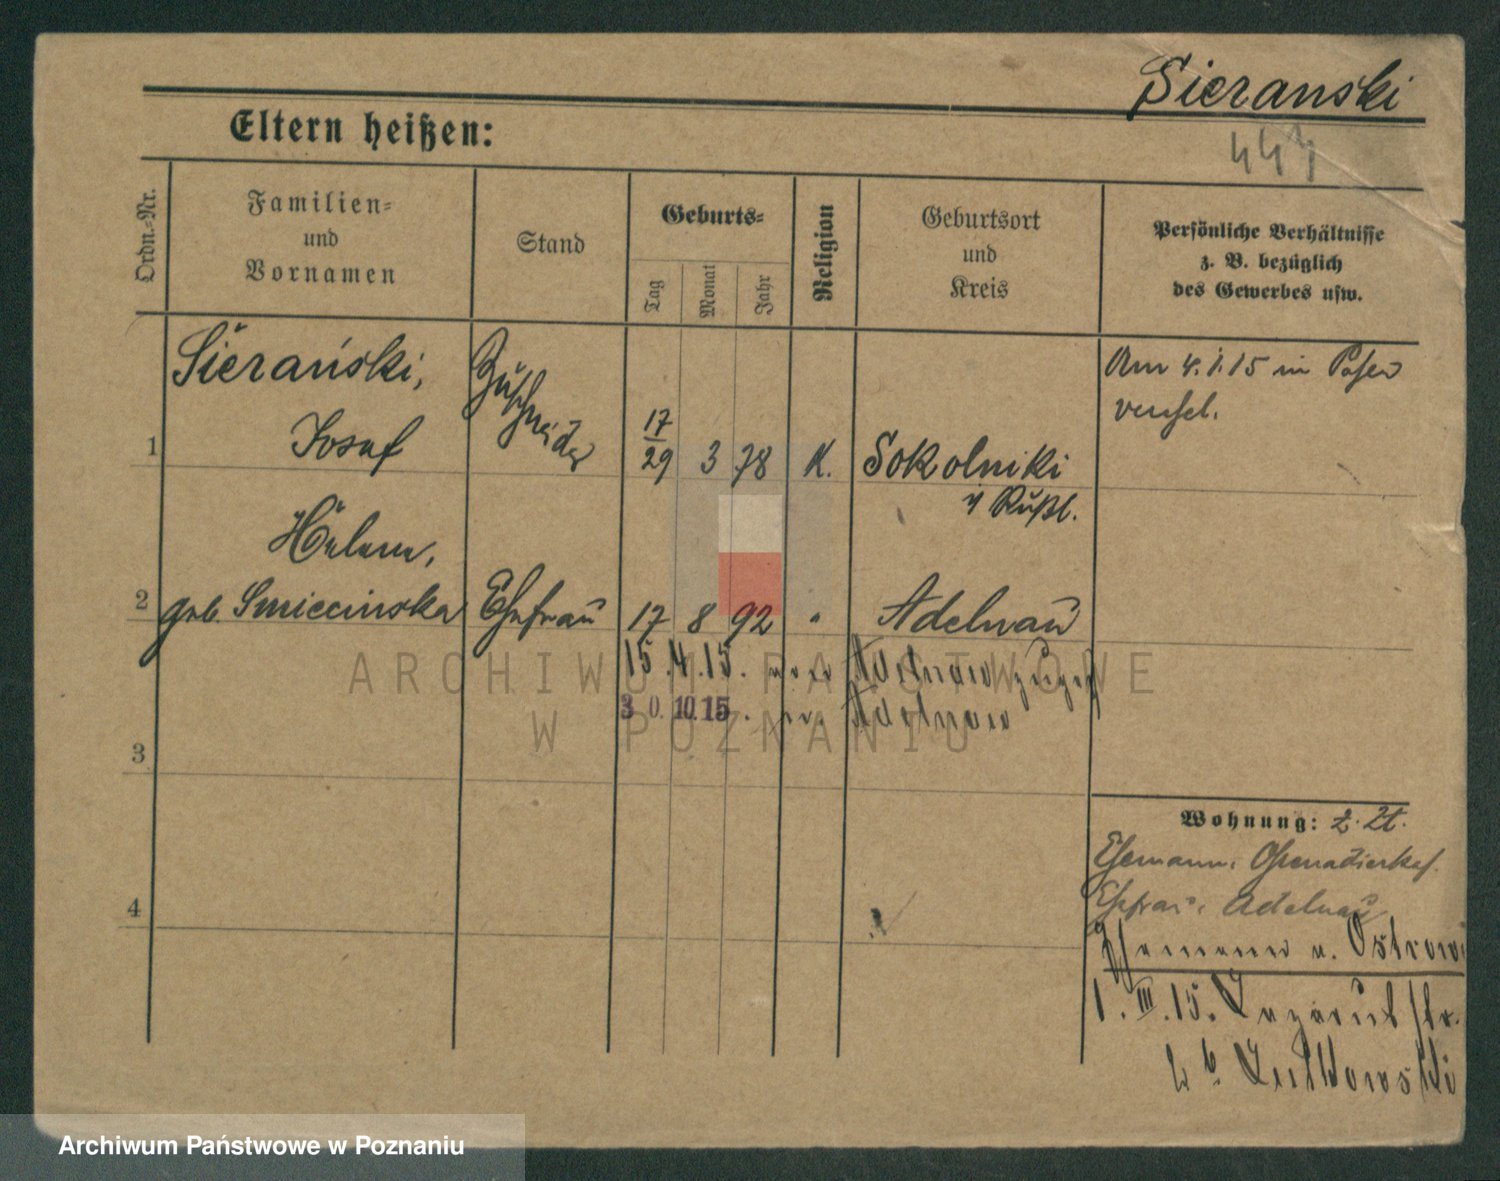 Sieranski
Eltern heißen:
Ordn.-Nr.
Familien-
und
Vornamen
Stand
Geburts-
Tag
Monat
Jahr
Religion
Geburtsort
und
Kreis
Persönliche Verhältnisse
z. B. bezüglich
des Gewerbes usw.
1
Sierański,
Josef
Zuschneider
17
29
3
78
K.
Sokolniki
Rußl.
Am 4.1.15 in Posen
2
Helene,
geb. Smiecinska
Ehefrau
17
8
92
"
Adelnau
15.4.15. Adelnau
30.10.15. Adelnau
3
4
Wohnung: z. Zt.
Ehemann: Grenadierkas.
Ehefrau: Adelnau
Ehemann n. Ostrowo
1.III.15. Lazarus str.
b. Lutkowski
ARCHIWUM PAŃSTWOWE
W POZNANIU
Archiwum Państwowe w Poznaniu